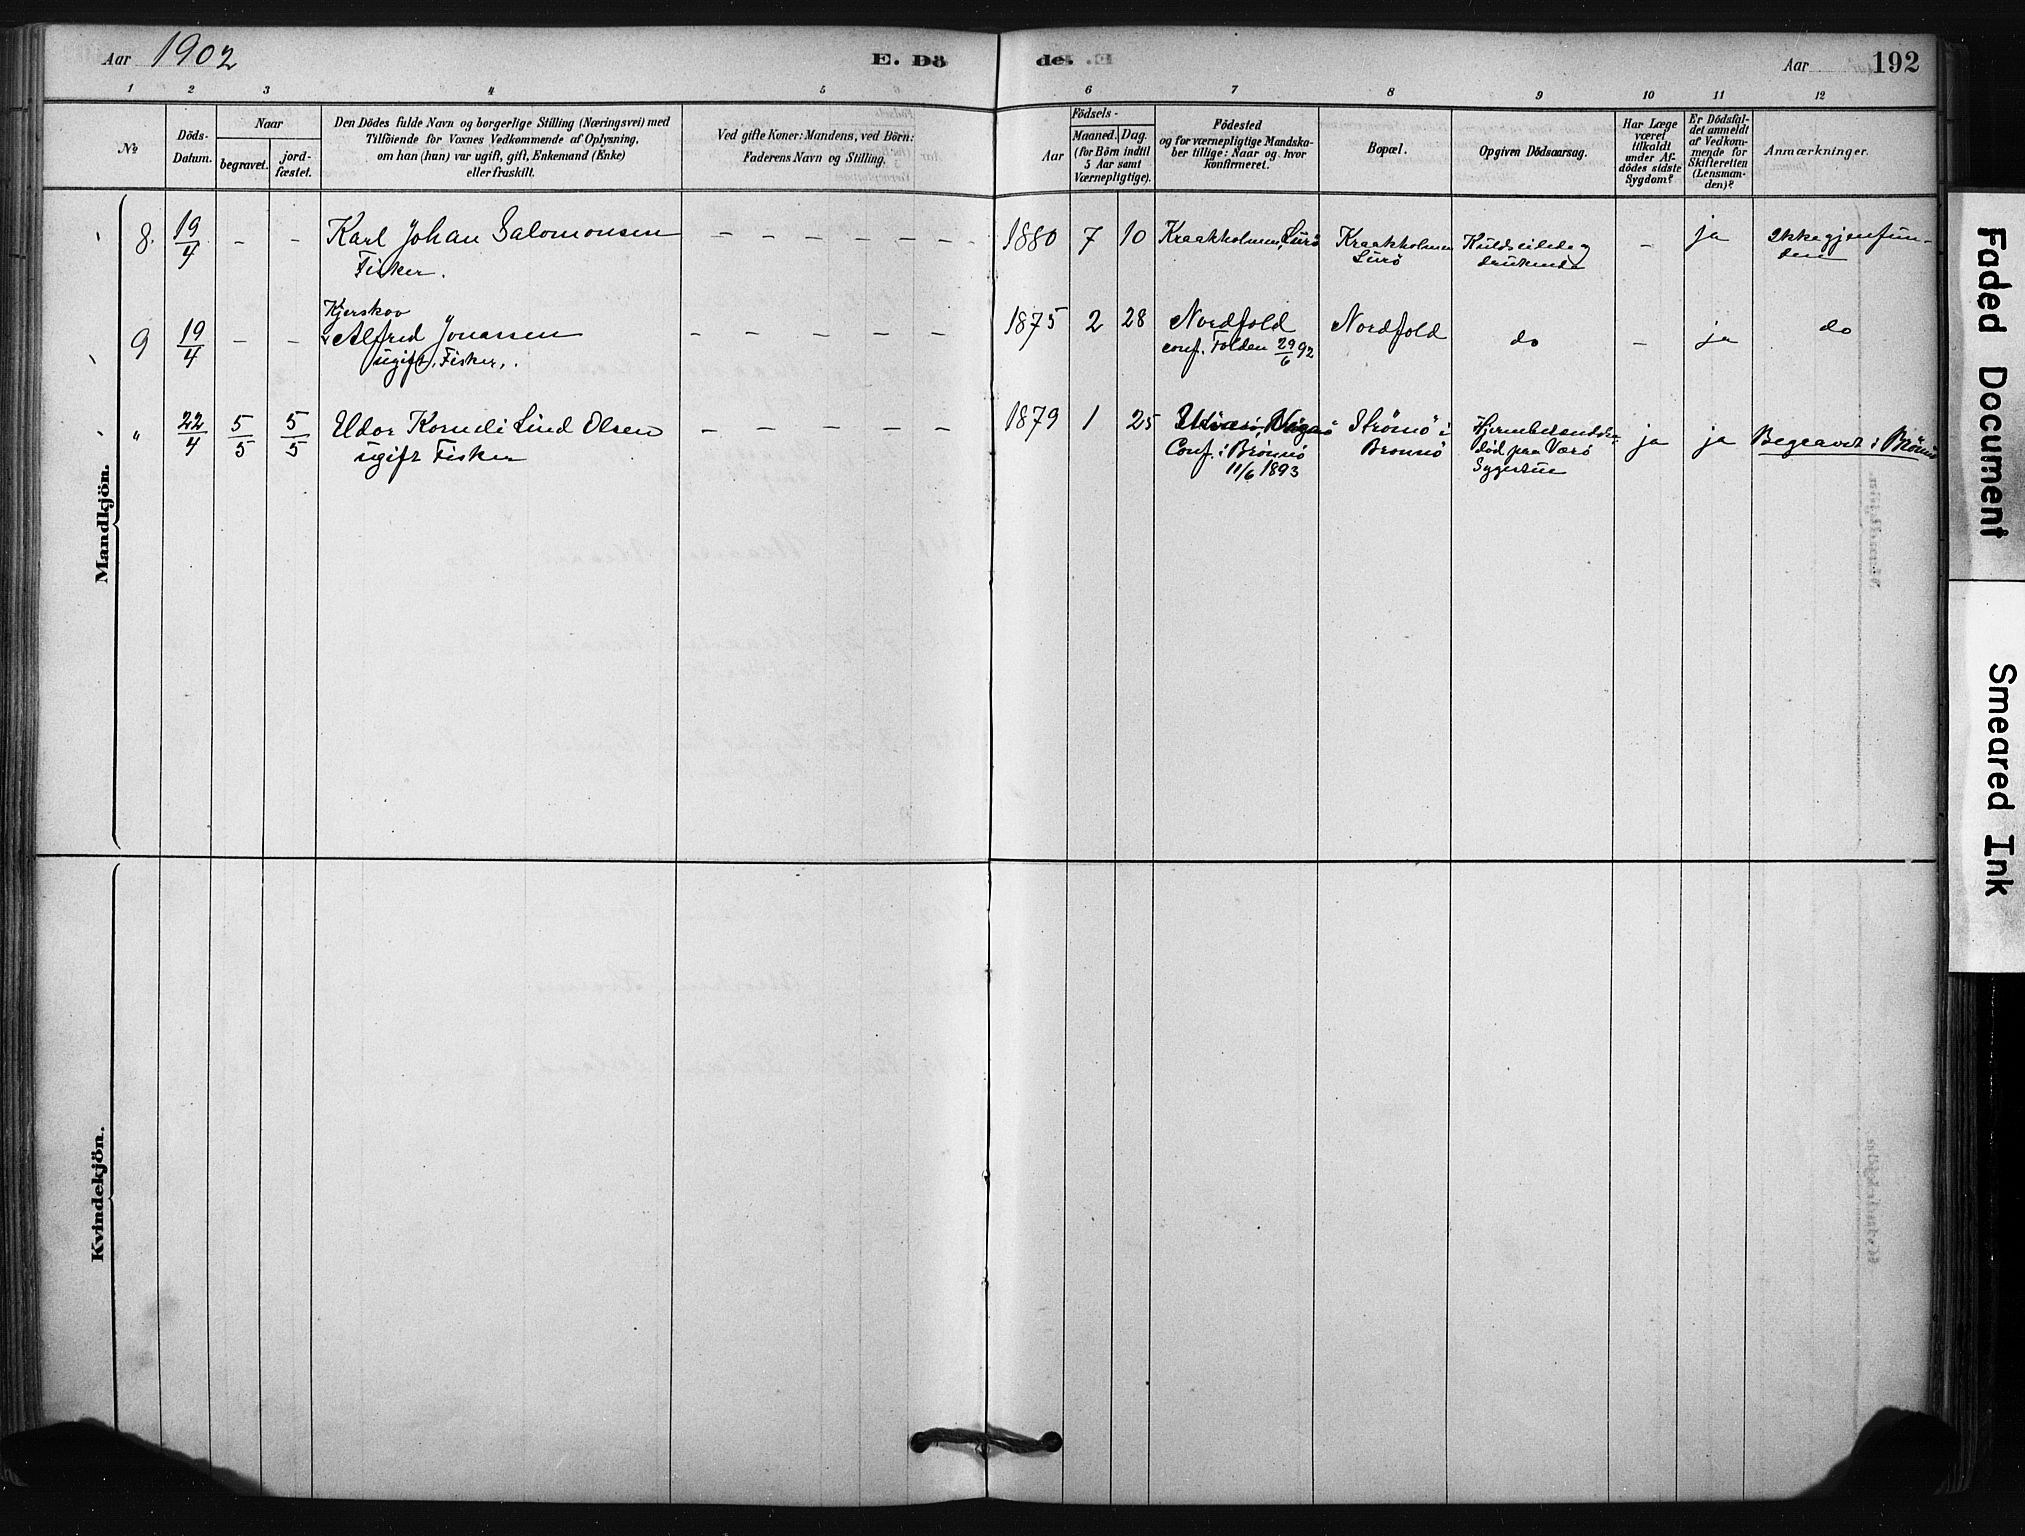 Aar 1902
E. Dö
de.
Aar
192
1 2 3 4 5 6 7 8 9 10 11 12
№
Döds-
Datum.
Naar
begravet.
jord-
fæstet.
Den Dödes fulde Navn og borgerlige Stilling (Næringsvei) med
Tilföiende for Voxnes Vedkommende af Oplysning,
om han (hun) var ugift, gift, Enkemand (Enke)
eller fraskilt.
Ved gifte Koner: Mandens, ved Börn:
Faderens Navn og Stilling.
Födsels-
Aar
Maaned. Dag.
(for Börn indtil
5 Aar samt
Værnepligtige).
Födested
og for værnepligtige Mandska-
ber tillige: Naar og hvor
konfirmeret.
Bopæl.
Opgiven Dödsaarsag.
Har Læge
været
tilkaldt
under Af-
dödes sidste
Sygdom?
Er Dödsfal-
det anmeldt
af Vedkom-
mende for
Skifteretten
(Lensman-
den)?
Anmærkninger.
Mandkjön.
8. 19/4 - - Karl Johan Salomonsen - - - - - - - 1880 7 10 Kraakholmen, Lurö Kraakholmen Kuldseilede og - ja Ikke gjenfun-
Fisker. Lurö druknede den
Kjerskov
9 19/4 - - Alfred Jonassen - - - - - - - 1875 2 28 Nordfold Nordfold do - ja do
ugift, Fisker. conf. Folden 29/6 92
" 22/4 5/5 5/5 Edor Korneli Lind Olsen - - - - - - - 1879 1 25 Strömö i Hjernebetændelse ja ja Begravet i Brönnö
ugift Fisker Conf. i Brönnö Brönnö död paa Værö
11/6 1893 Sygestue
Kvindekjön.
Faded Document
Smeared Ink